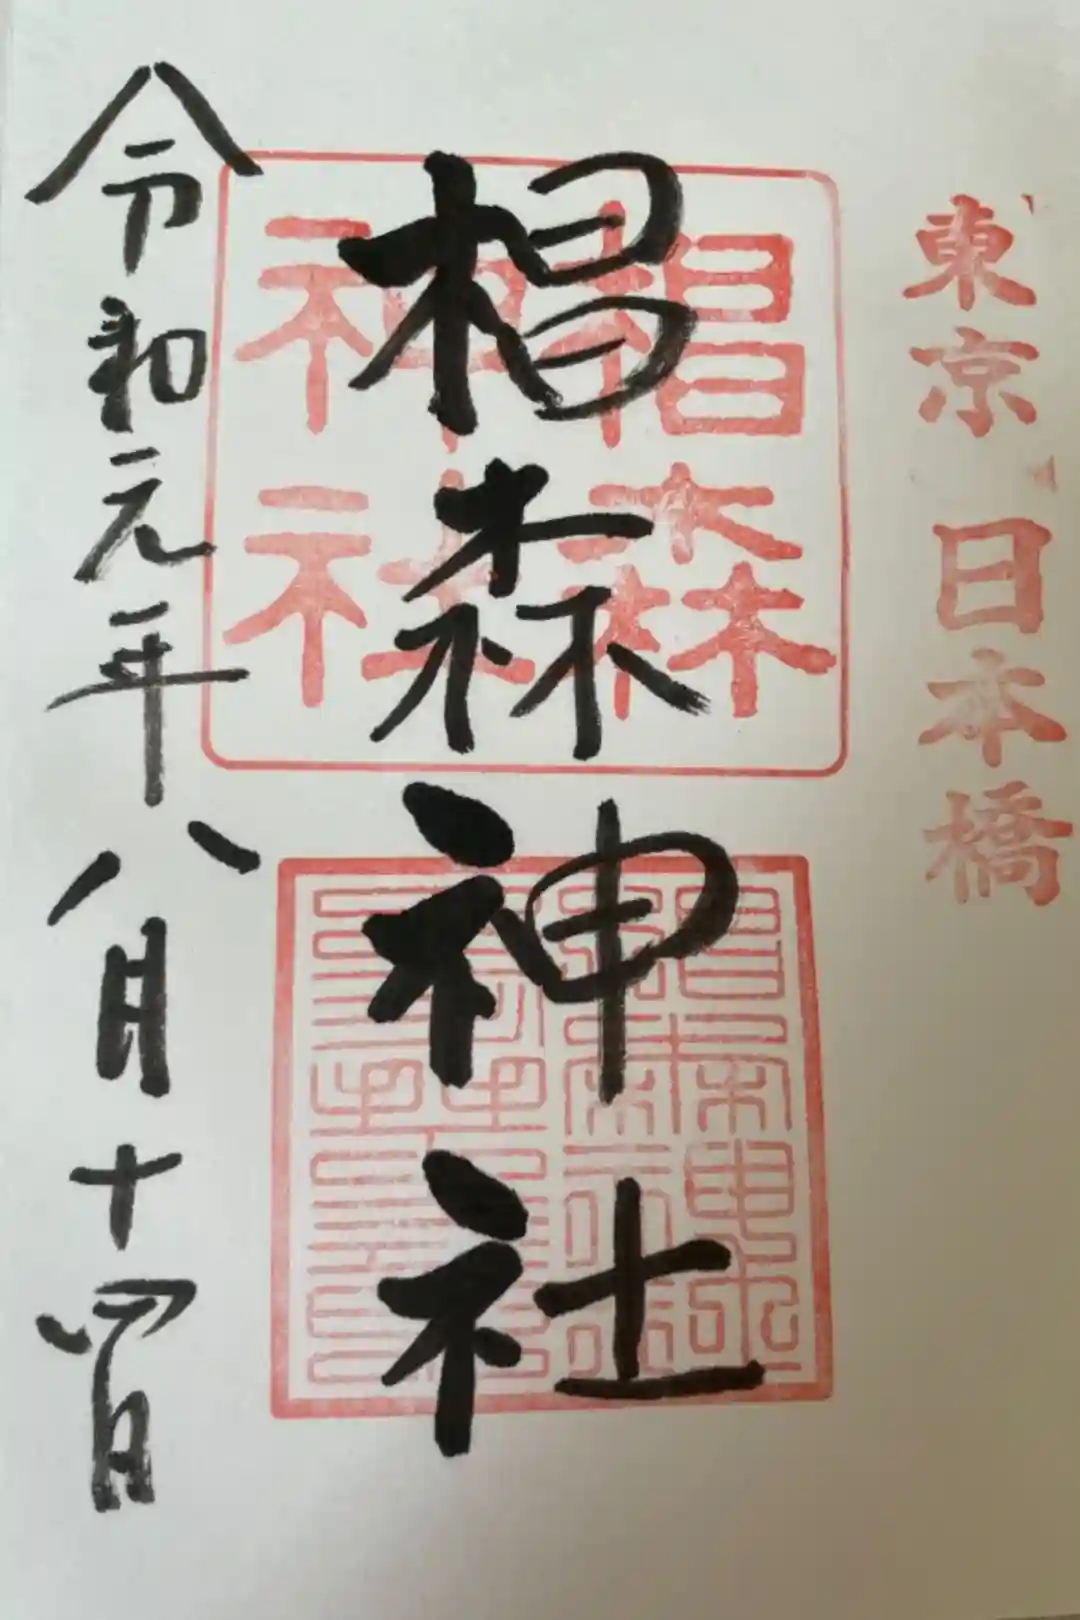 東京日本橋
椙森神社
椙森
神社
令和元年八月十四日